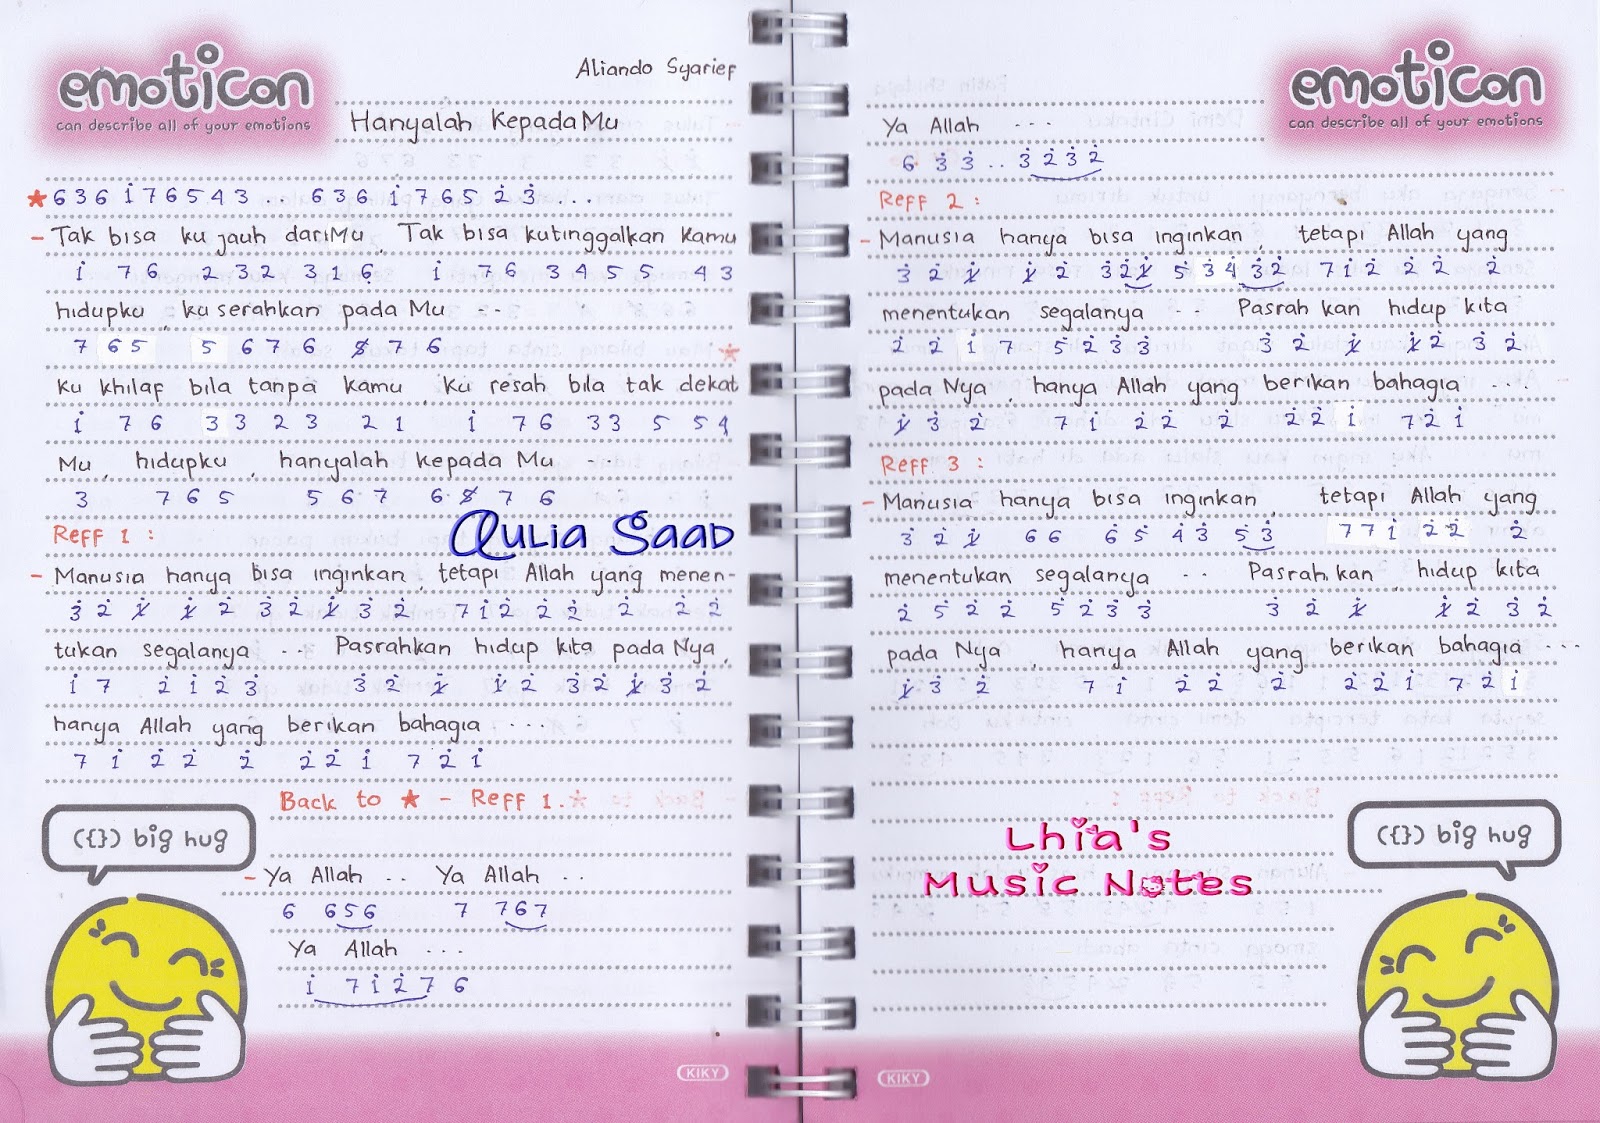 emoticon
can describe all of your emotions
Aliando Syarief
Hanyalah KepadaMu
★ 6 3 6 i̇ 7 6 5 4 3 . . 6 3 6 i̇ 7 6 5 2̇ 3̇ ....
- Tak bisa ku jauh dariMu, Tak bisa kutinggalkan kamu
i̇ 7 6 2 3 2 3 1 6̣ i̇ 7 6 3 4 5 5 4 3
hidupku, ku serahkan pada Mu ...
7 6 5 5 6 7 6 5̸ 7 6 ★
Ku khilaf bila tanpa kamu, Ku resah bila tak dekat
i̇ 7 6 3 3 2 3 2 1 i̇ 7 6 3 3 5 5 4
Mu, hidupku, hanyalah kepada Mu ...
3 7 6 5 5 6 7 6 5̸ 7 6
Aulia Saad
Reff 1 :
- Manusia hanya bisa inginkan, tetapi Allah yang menen-
3̇ 2̇ 1̸̇ 1̸̇ 2̇ 3̇ 2̇ 1̸̇ 3̇ 2̇ 7 i̇ 2̇ 2̇ 2̇ 2̇ 2̇ 2̇
tukan segalanya ... Pasrahkan hidup kita pada Nya,
i̇ 7 2̇ i̇ 2̇ 3̇ 3̇ 2̇ 1̸̇ 1̸̇ 2̇ 3̇ 2̇ 1̸̇ 3̇ 2̇
hanya Allah yang berikan bahagia ....
7 i̇ 2̇ 2̇ 2̇ 2̇ 2̇ i̇ 7 2̇ i̇
Back to ★ - Reff 1. ★
({}) big hug
- Ya Allah .. Ya Allah ..
6 6 5 6 7 7 6 7
Ya Allah ...
i̇ 7 i̇ 2̇ 7 6
KIKY
emoticon
can describe all of your emotions
Ya Allah ...
6 3̇ 3̇ .. 3̇ 2̇ 3̇ 2̇
Reff 2 :
- Manusia hanya bisa inginkan, tetapi Allah yang
3̇ 2̇ 1̸̇ 1̸̇ 2̇ 3̇ 2̇ 1̸̇ 5̇ 3̇ 4̇ 3̇ 2̇ 7 i̇ 2̇ 2̇ 2̇ 2̇
menentukan segalanya .. Pasrah kan hidup kita
2̇ 2̇ i̇ 7 5̇ 2̇ 3̇ 3̇ 3̇ 2̇ 1̸̇ 1̸̇ 2̇ 3̇ 2̇
pada Nya, hanya Allah yang berikan bahagia ....
1̸̇ 3̇ 2̇ 7 i̇ 2̇ 2̇ 2̇ 2̇ 2̇ i̇ 7 2̇ i̇
Reff 3 :
- Manusia hanya bisa inginkan, tetapi Allah yang
3̇ 2̇ 1̸̇ 6 6 6̇ 5̇ 4̇ 3̇ 5̇ 3̇ 7 7 i̇ 2̇ 2̇ 2̇
menentukan segalanya .. Pasrah kan hidup kita
2̇ 5̇ 2̇ 2̇ 5̇ 2̇ 3̇ 3̇ 3̇ 2̇ 1̸̇ 1̸̇ 2̇ 3̇ 2̇
pada Nya, hanya Allah yang berikan bahagia ...
1̸̇ 3̇ 2̇ 7 i̇ 2̇ 2̇ 2̇ 2̇ 2̇ i̇ 7 2̇ i̇
Lhia's
Music Notes
({}) big hug
KIKY